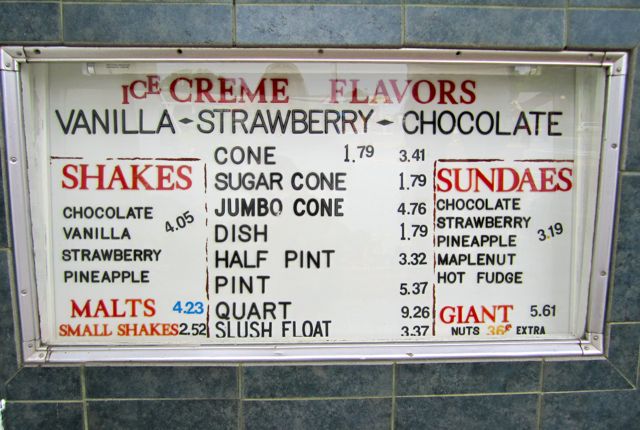 ICE CREME FLAVORS
VANILLA - STRAWBERRY - CHOCOLATE
SHAKES
CHOCOLATE
VANILLA 4.05
STRAWBERRY
PINEAPPLE
MALTS 4.23
SMALL SHAKES 2.52
CONE 1.79 3.41
SUGAR CONE 1.79
JUMBO CONE 4.76
DISH 1.79
HALF PINT 3.32
PINT 5.37
QUART 9.26
SLUSH FLOAT 3.37
SUNDAES
CHOCOLATE
STRAWBERRY
PINEAPPLE 3.19
MAPLENUT
HOT FUDGE
GIANT 5.61
NUTS 36¢ EXTRA